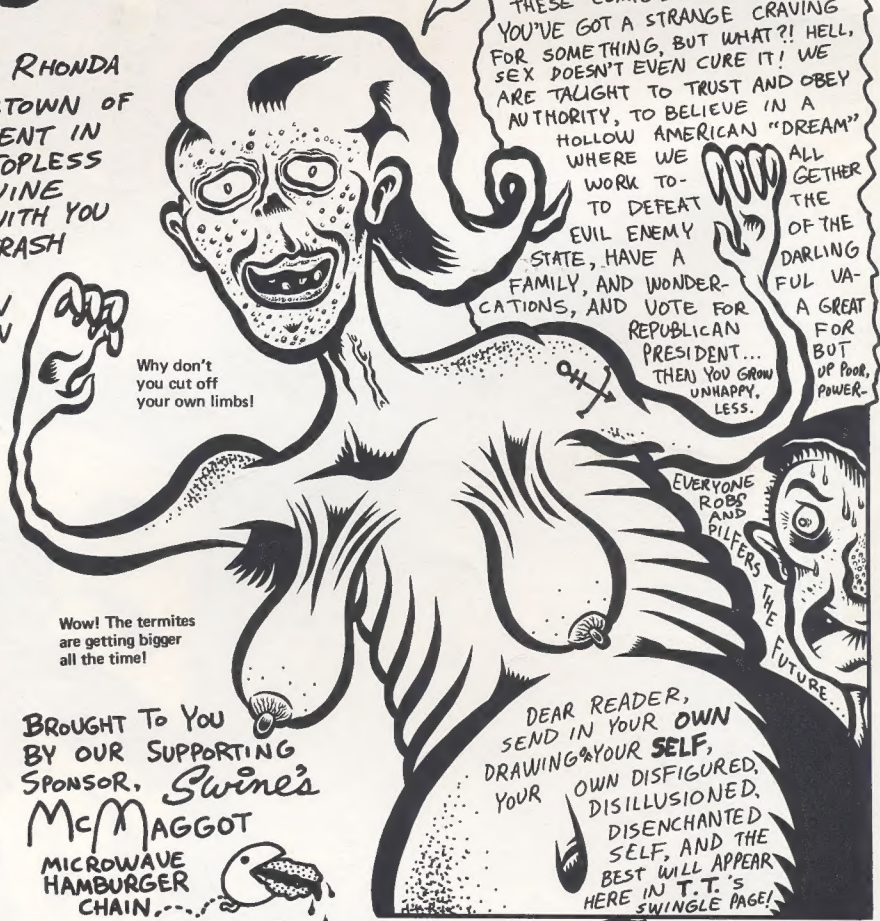 RHONDA
TOWN OF
ENT IN
TOPLESS
VINE
WITH YOU
RASH
THESE
YOU'VE GOT A STRANGE CRAVING
FOR SOMETHING, BUT WHAT?! HELL,
SEX DOESN'T EVEN CURE IT! WE
ARE TAUGHT TO TRUST AND OBEY
AUTHORITY, TO BELIEVE IN A
HOLLOW AMERICAN "DREAM"
WHERE WE ALL
WORK TO- GETHER
TO DEFEAT THE
EVIL ENEMY OF THE
STATE, HAVE A DARLING
FAMILY, AND WONDER- FUL VA-
CATIONS, AND VOTE FOR A GREAT
REPUBLICAN FOR
PRESIDENT... BUT
THEN YOU GROW UP POOR,
UNHAPPY, POWER-
LESS.
Why don't
you cut off
your own limbs!
EVERYONE
ROBS
AND
PILFERS
THE
FUTURE...
Wow! The termites
are getting bigger
all the time!
BROUGHT TO YOU
BY OUR SUPPORTING
SPONSOR, Swine's
McMAGGOT
MICROWAVE
HAMBURGER
CHAIN.
DEAR READER,
SEND IN YOUR OWN
DRAWING OF YOUR SELF,
YOUR OWN DISFIGURED,
DISILLUSIONED,
DISENCHANTED
SELF, AND THE
BEST WILL APPEAR
HERE IN T.T.'S
SWINGLE PAGE!